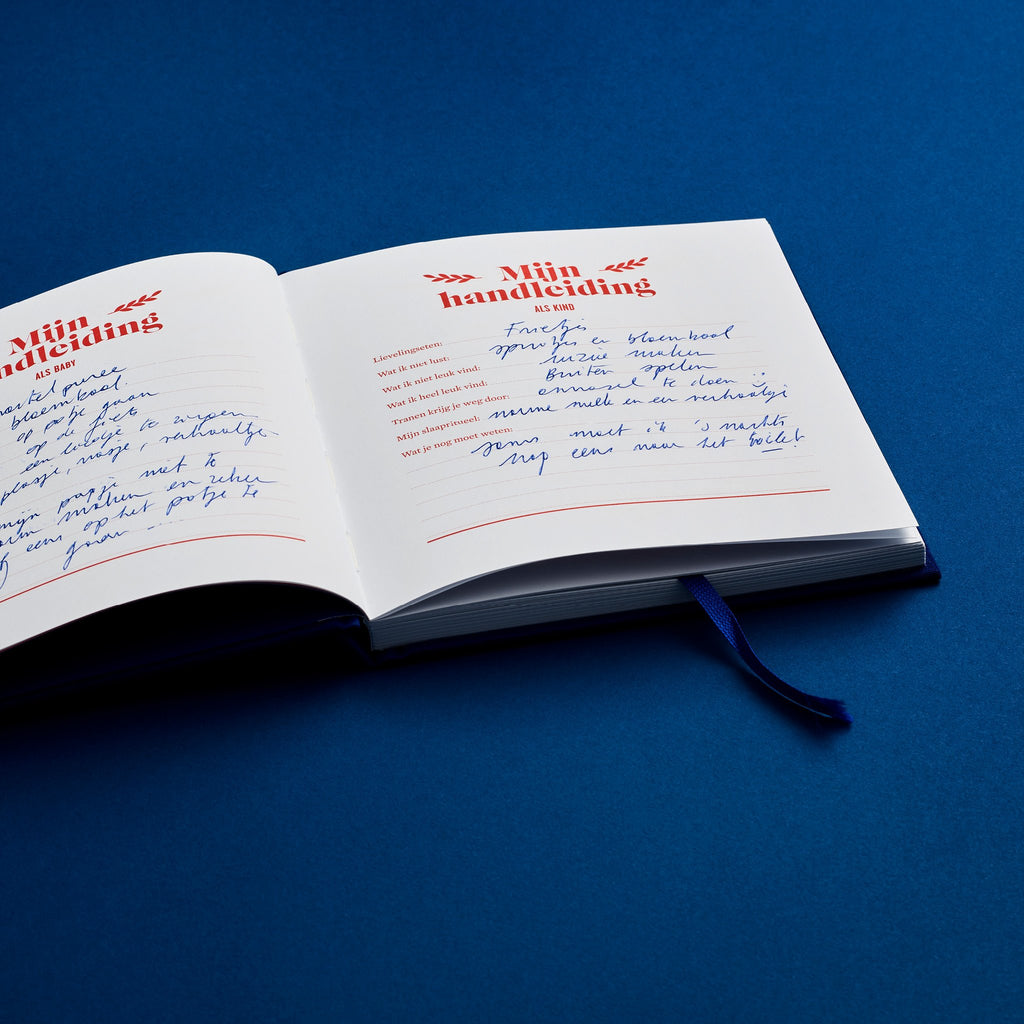 Mijn
ndleiding
ALS BABY
bloemkool.
op potje gaan
op de fiets
een liedje te zingen
plasje, verhaaltje
mijn papje niet te
maken en zeker
eens op het potje te
gaan
Mijn
handleiding
ALS KIND
Lievelingseten: Frietjes
Wat ik niet lust: spruitjes en bloemkool
Wat ik niet leuk vind: ruzie maken
Wat ik heel leuk vind: Buiten spelen
Tranen krijg je weg door: onnozel te doen
Mijn slaapritueel: warme melk en een verhaaltje
Wat je nog moet weten: soms moet ik 's nachts
nog eens naar het toilet